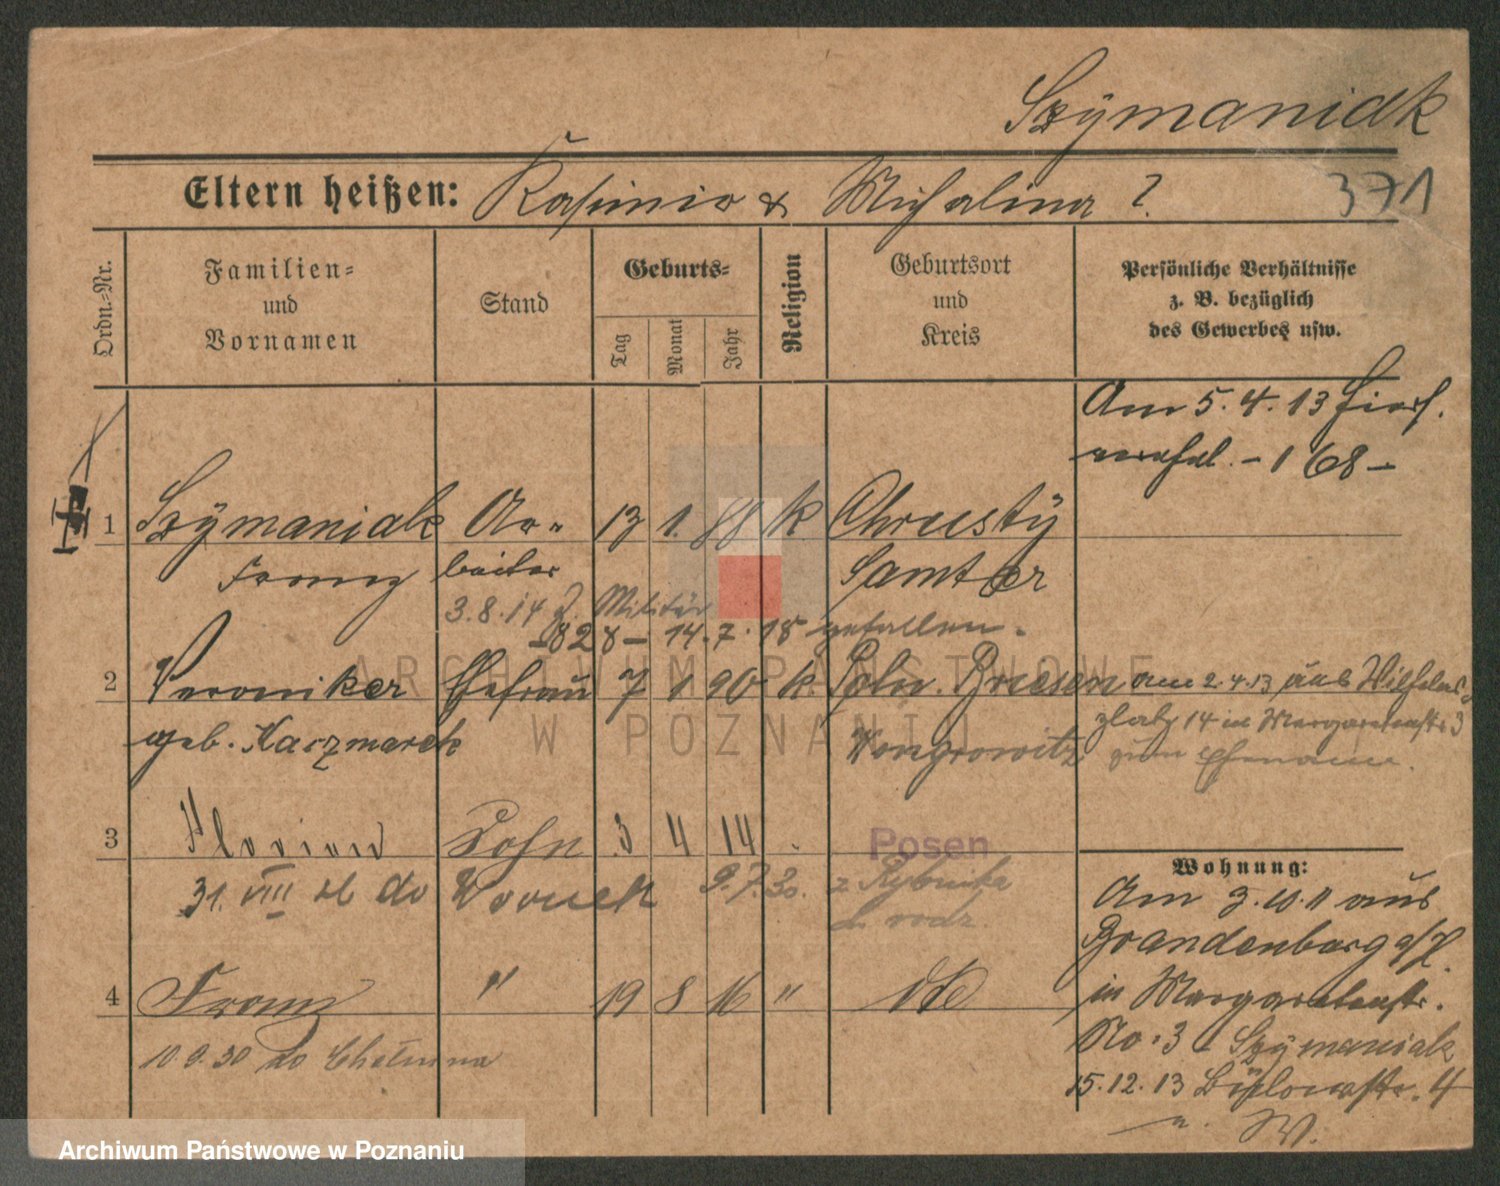 Szÿmaniak
Eltern heißen: Kasimir & Michalina ?.
371
Ordn.=Nr.
Familien=
und
Vornamen
Stand
Geburts=
Tag
Monat
Jahr
Religion
Geburtsort
und
Kreis
Persönliche Verhältnisse
z. B. bezüglich
des Gewerbes usw.
Am 5. 4. 13
- 168 -
1 Szÿmaniak Ar= 13 1. 88 k Chrustÿ
Franz beiter Samter
3.8.14 z. Militär
-828- 14.7.18 gefallen.
2 Veronika Ehefrau 7 1 90 k. Poln. Briesen
geb. Kaczmarek Wongrowitz
am 2.4.13 aus Wilhelms=
platz 14 in Margaretenstr. 3
zum Ehemann.
3 Florian Sohn 3 4 14 Posen
31. VIII do 9.7.30. z Rybnika
4 Franz " 19 8 16 " dto
10.9.30 do Chełmna
Wohnung:
Am 3.10.11 aus
Brandenburg a/H.
in Margaretenstr.
No. 3 Szÿmaniak
15.12.13 4
ARCHIWUM PAŃSTWOWE
W POZNANIU
Archiwum Państwowe w Poznaniu